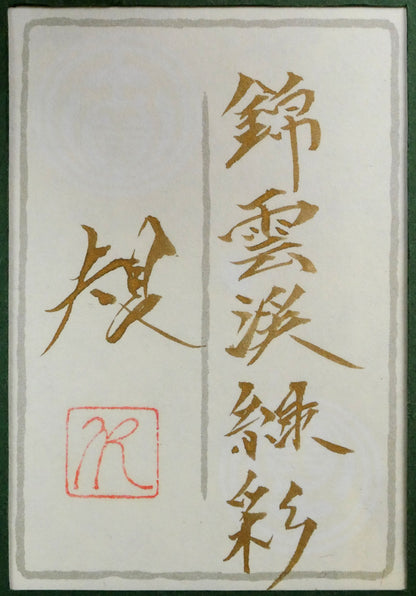 錦雲渓練彩
規